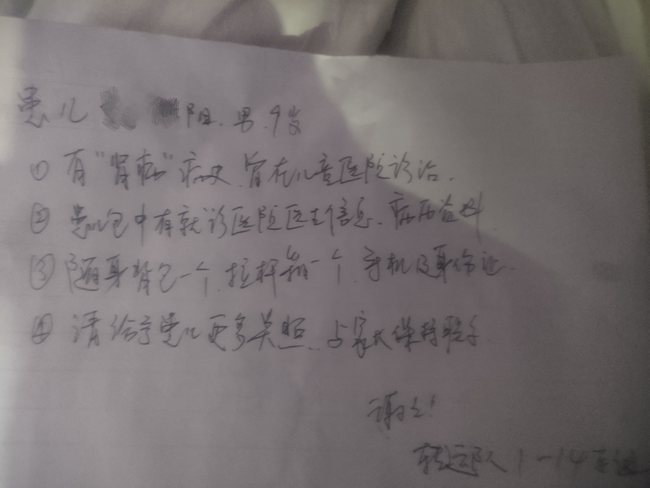 患儿 阳.男.9岁
① 有“肾病”病史.曾在儿童医院诊治.
② 患儿包中有就诊医院医生信息.病历资料
③ 随身背包一个.拉杆箱一个.手机及身份证.
④ 请给予患儿更多关照.与家长保持联系.
谢谢!
转运队1-14